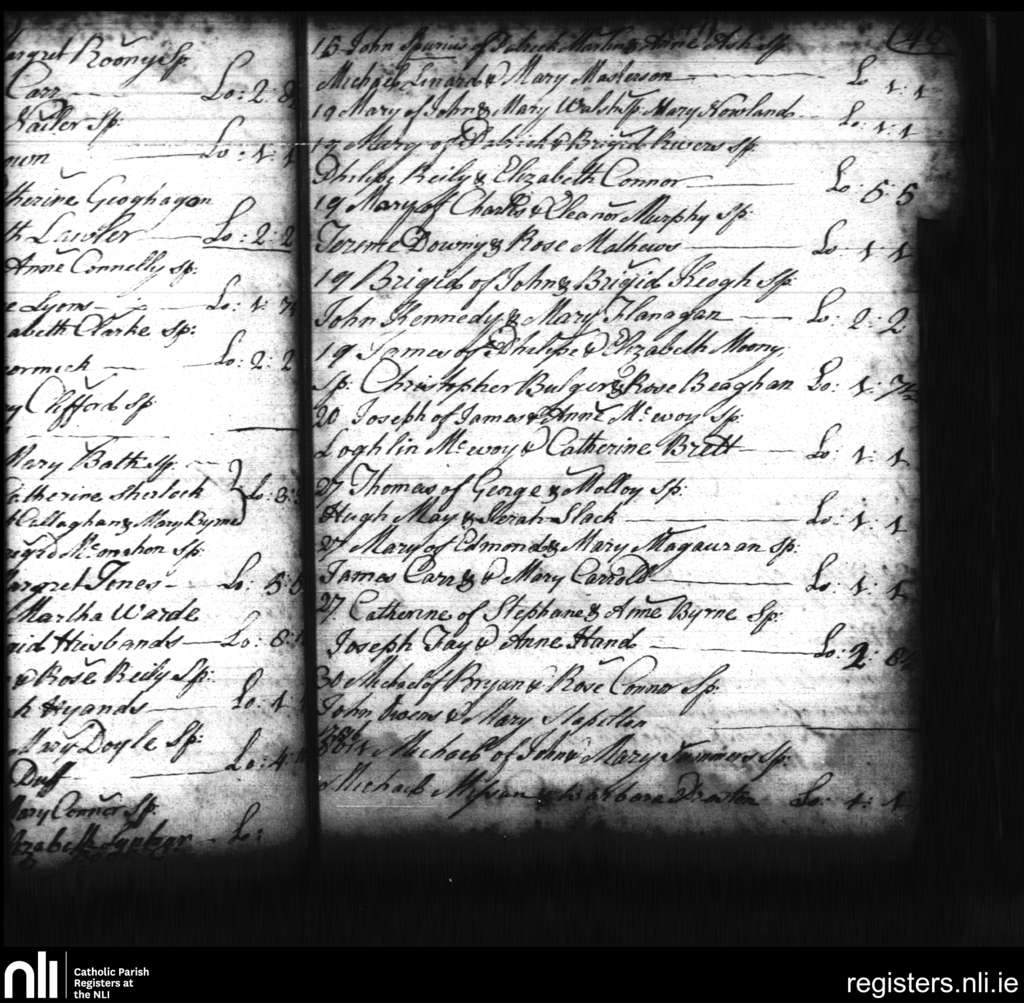 argret Roony Sp:
Carr Lo: 2: 8½
Nailer Sp:
own Lo: 1: 1
therine Geoghagan
th Lawler Lo: 2: 2
Anne Connelly Sp:
e Lyons Lo: 1: 7½
abeth Clarke Sp:
ormeck Lo: 2: 2
y Clifford Sp:
Mary Bath Sp:
Catherine Sherlock Lo: 8:
Callaghan & Mary Byrne
Sp:
argret Jones Lo: 5: 5
Martha Warde
gid Husbands Lo: 8:
& Rose Reily Sp:
k Hyands Lo: 1
Mary Doyle Sp:
Duff Lo: 4:
Mary Connor Sp:
Lo:
15 John Spurius of Patrick Martin & Anne Ash Sp
Michael Linard & Mary Masterson Lo 1: 1
19 Mary of John & Mary Walsh Sp. Mary Nowland Lo: 1: 1
19 Mary of Patrick & Brigid Rivers Sp
Philipe Reily & Elizabeth Connor Lo: 5: 5
19 Mary of Charles & Eleanor Murphy Sp:
Terence Downy & Rose Mathews Lo: 1: 1
19 Brigid of John & Brigid Keogh Sp:
John Kennedy & Mary Flanagan Lo: 2: 2
19 James of Philipe & Elizabeth Moony
Sp: Christopher Bulger & Rose Beaghan Lo: 1: 7½
20 Joseph of James & Anne Mc.evoy Sp:
Loghlin Mc.evoy & Catherine Brett Lo: 1: 1
27 Thomas of George & Molloy Sp:
Hugh May & Sarah Slack Lo: 1: 1
27 Mary of Edmond & Mary Magauran Sp:
James Carr & Mary Carroll Lo: 1: 1
27 Catherine of Stephane & Anne Byrne Sp:
Joseph Fay & Anne Hand Lo: 2: 8½
30 Michael of Bryan & Rose Connor Sp:
John Owens & Mary
Michael of John & Mary Summers Sp:
Michael & Barbara Lo: 1: 1
nli
Catholic Parish
Registers at
the NLI
registers.nli.ie